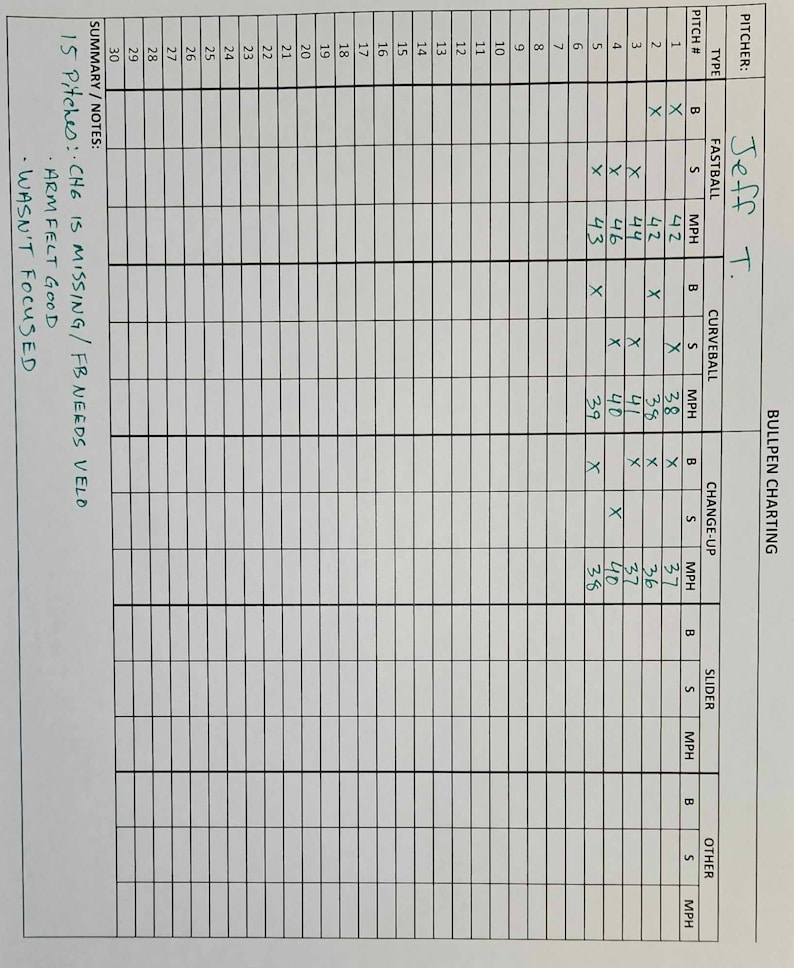 BULLPEN CHARTING
PITCHER: Jeff T.
TYPE FASTBALL CURVEBALL CHANGE-UP SLIDER OTHER
PITCH # B S MPH B S MPH B S MPH B S MPH B S MPH
1 X 42 X 38 X 37
2 X 42 X 38 X 36
3 X 44 X 41 X 37
4 X 46 X 40 X 40
5 X 43 X 39 X 38
6
7
8
9
10
11
12
13
14
15
16
17
18
19
20
21
22
23
24
25
26
27
28
29
30
SUMMARY / NOTES:
15 Pitches: · CHG IS MISSING / FB NEEDS VELO
· ARM FELT GOOD
· WASN'T FOCUSED